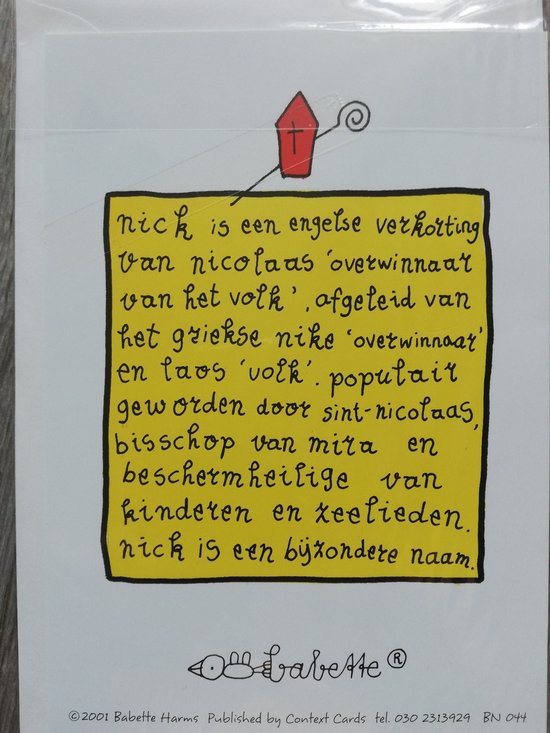 nick is een engelse verkorting
van nicolaas 'overwinnaar
van het volk', afgeleid van
het griekse nike 'overwinnaar'
en laos 'volk'. populair
geworden door sint-nicolaas,
bisschop van mira en
beschermheilige van
kinderen en zeelieden.
nick is een bijzondere naam.
babette ®
©2001 Babette Harms Published by Context Cards tel. 030 2313929 BN 044